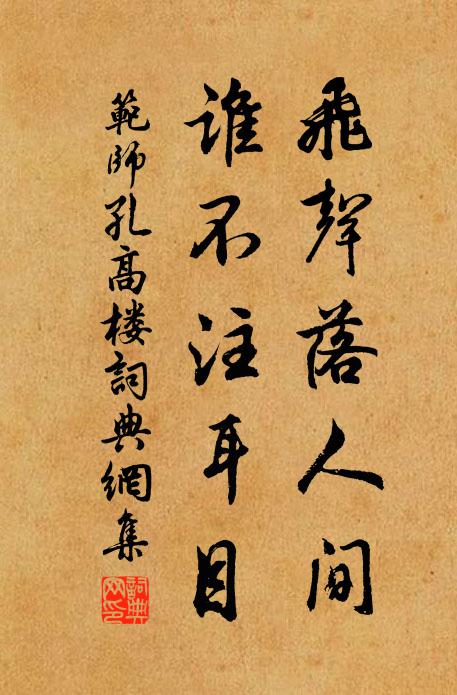 飛聲落人間
誰不注耳目
範師孔高楼詞典網集
詞典网印